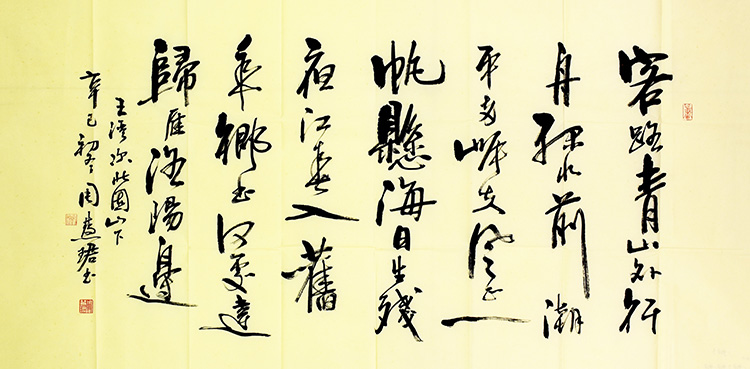 客路青山外行
舟綠水前潮
平兩岸失风正一
帆懸海日生殘
夜江春入舊
年鄉书何處達
歸雁洛陽邊
王湾次北固山下
辛巳初冬周慧珺书